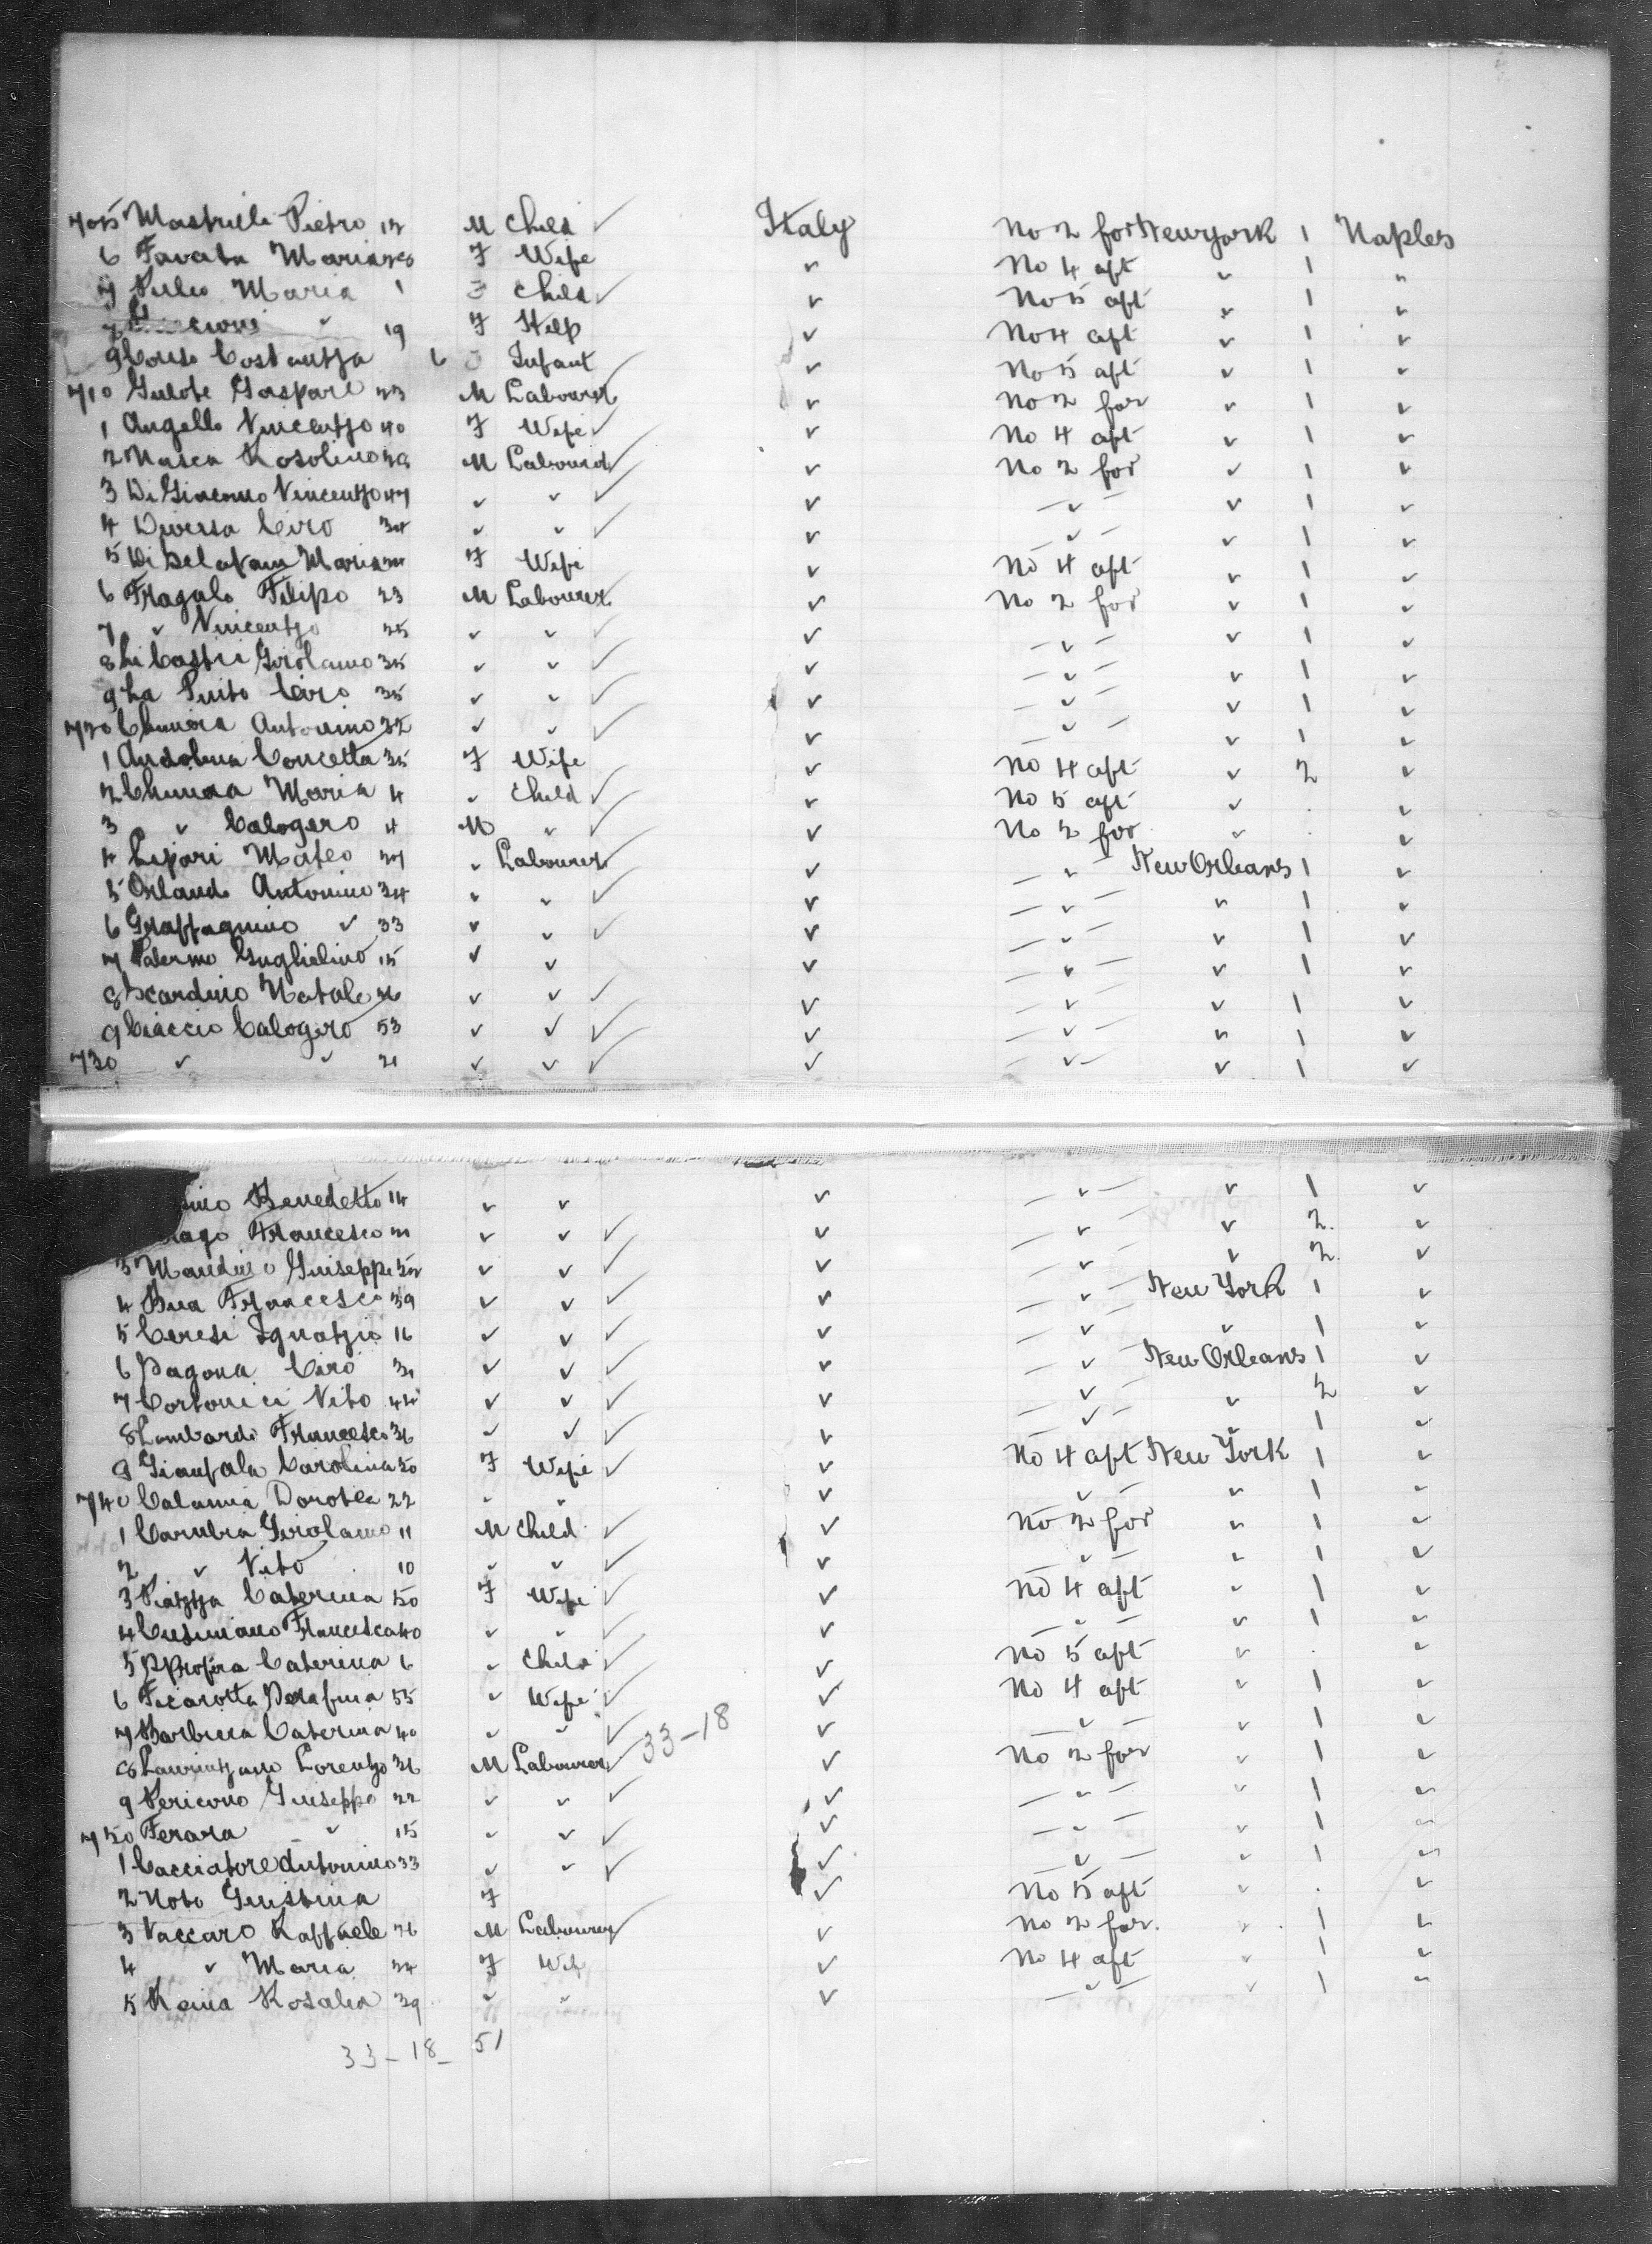 705 Mastrilli Pietro 12 M Child ✓ Italy No 2 for New york 1 Naples
6 Favata Maria F Wife ✓ No 4 aft ✓ 1 "
7 Puleo Maria 1 Child ✓ ✓ No 5 aft ✓ 1 ✓
✓ 19 F Help ✓ No 4 aft ✓ 1 ✓
9 Corso Costantza 6 Infant ✓ ✓ No 5 aft ✓ 1 ✓
710 Gulote Gaspare 23 M Labourer ✓ ✓ No 2 for ✓ 1 ✓
1 Angello Vincentzo 40 F Wife ✓ ✓ No 4 aft ✓ 1 ✓
2 Nasca Rosolino M Labourer ✓ ✓ No 2 for ✓ 1 ✓
3 Di Giacomo Vincentzo 47 ✓ ✓ ✓ ✓ — ✓ — ✓ 1 ✓
4 Diversa Ciro 34 ✓ ✓ ✓ ✓ — ✓ — ✓ 1 ✓
5 Di Maria F Wife ✓ No 4 aft ✓ 1 ✓
6 Fragale Filipo 23 M Labourer ✓ ✓ No 2 for ✓ 1 ✓
7 ✓ Vincentzo 25 ✓ ✓ ✓ ✓ — ✓ — ✓ 1 ✓
8 Li Castri Girolamo 35 ✓ ✓ ✓ ✓ — ✓ — ✓ 1 ✓
9 La Ciro 35 ✓ ✓ ✓ ✓ — ✓ — ✓ 1 ✓
720 Chimera Antonino 32 ✓ ✓ ✓ ✓ — ✓ — ✓ 1 ✓
1 Andolina Concetta 35 F Wife ✓ No 4 aft ✓ 2 ✓
2 Chimera Maria 4 ✓ Child ✓ ✓ No 5 aft ✓ . ✓
3 ✓ Calogero 4 M ✓ ✓ ✓ No 2 for ✓ . ✓
4 Lipari Mateo 27 ✓ Labourer ✓ ✓ — ✓ — New Orleans 1 ✓
5 Orlando Antonino 34 ✓ ✓ ✓ ✓ — ✓ — ✓ 1 ✓
6 Graffagnino ✓ 33 ✓ ✓ ✓ ✓ — ✓ — ✓ 1 ✓
7 Palermo Guglielmo 15 ✓ ✓ ✓ — ✓ — ✓ 1 ✓
8 Scardino Natale 26 ✓ ✓ ✓ ✓ — ✓ — ✓ 1 ✓
9 Ciaccio Calogero 53 ✓ ✓ ✓ ✓ — ✓ — ✓ 1 ✓
730 ✓ ✓ 21 ✓ ✓ ✓ ✓ — ✓ — ✓ 1 ✓
Benedetto 14 ✓ ✓ ✓ — ✓ — ✓ 1 ✓
Francesco ✓ ✓ ✓ ✓ — ✓ — ✓ 2. ✓
3 Mandino Guiseppe ✓ ✓ ✓ ✓ — ✓ — ✓ 2. ✓
4 Bua Francesco 39 ✓ ✓ ✓ ✓ — ✓ — New York 1 ✓
5 Ceresi Ignatzio 16 ✓ ✓ ✓ ✓ — ✓ — ✓ 1 ✓
6 Pagona Ciro ✓ ✓ ✓ ✓ — ✓ — New Orleans 1 ✓
7 Cortonici Vito ✓ ✓ ✓ ✓ — ✓ — ✓ 2 ✓
8 Lombardo Francesco 36 ✓ ✓ ✓ ✓ — ✓ — ✓ 1 ✓
9 Gianfala Carolina 50 F Wife ✓ ✓ No 4 aft New York 1 ✓
740 Calamia Dorotea 22 ✓ ✓ ✓ — ✓ — ✓ 1 ✓
1 Carubia Girolamo 11 M Child ✓ ✓ No 2 for ✓ 1 ✓
2 ✓ Vito 10 ✓ ✓ ✓ ✓ — ✓ — ✓ 1 ✓
3 Piatza Caterina 50 F Wife ✓ ✓ No 4 aft ✓ 1 ✓
4 Cusimano Francesca 40 ✓ ✓ ✓ ✓ — ✓ — ✓ 1 ✓
5 Caterina 6 ✓ Child ✓ ✓ No 5 aft ✓ . ✓
6 Ficarotta Serafina 55 ✓ Wife ✓ ✓ No 4 aft ✓ 1 ✓
7 Barbiera Caterina 40 ✓ ✓ ✓ 33-18 ✓ — ✓ — ✓ 1 ✓
8 Laurintzano Lorentzo 36 M Labourer ✓ ✓ No 2 for ✓ 1 ✓
9 Pericono Giuseppe 22 ✓ ✓ ✓ ✓ — ✓ — ✓ 1 ✓
750 Ferara ✓ 15 ✓ ✓ ✓ ✓ — ✓ — ✓ 1 ✓
1 Cacciatore Antonino 33 ✓ ✓ ✓ ✓ — ✓ — ✓ 1 ✓
2 Noto Giustina F ✓ No 5 aft ✓ . ✓
3 Vaccaro Raffaele 26 M Labourer ✓ ✓ No 2 for ✓ 1 ✓
4 ✓ Maria 24 F Wife ✓ No 4 aft ✓ 1 ✓
5 Reina Rosalia 39 ✓ ✓ ✓ — ✓ — ✓ 1 ✓
33-18- 51